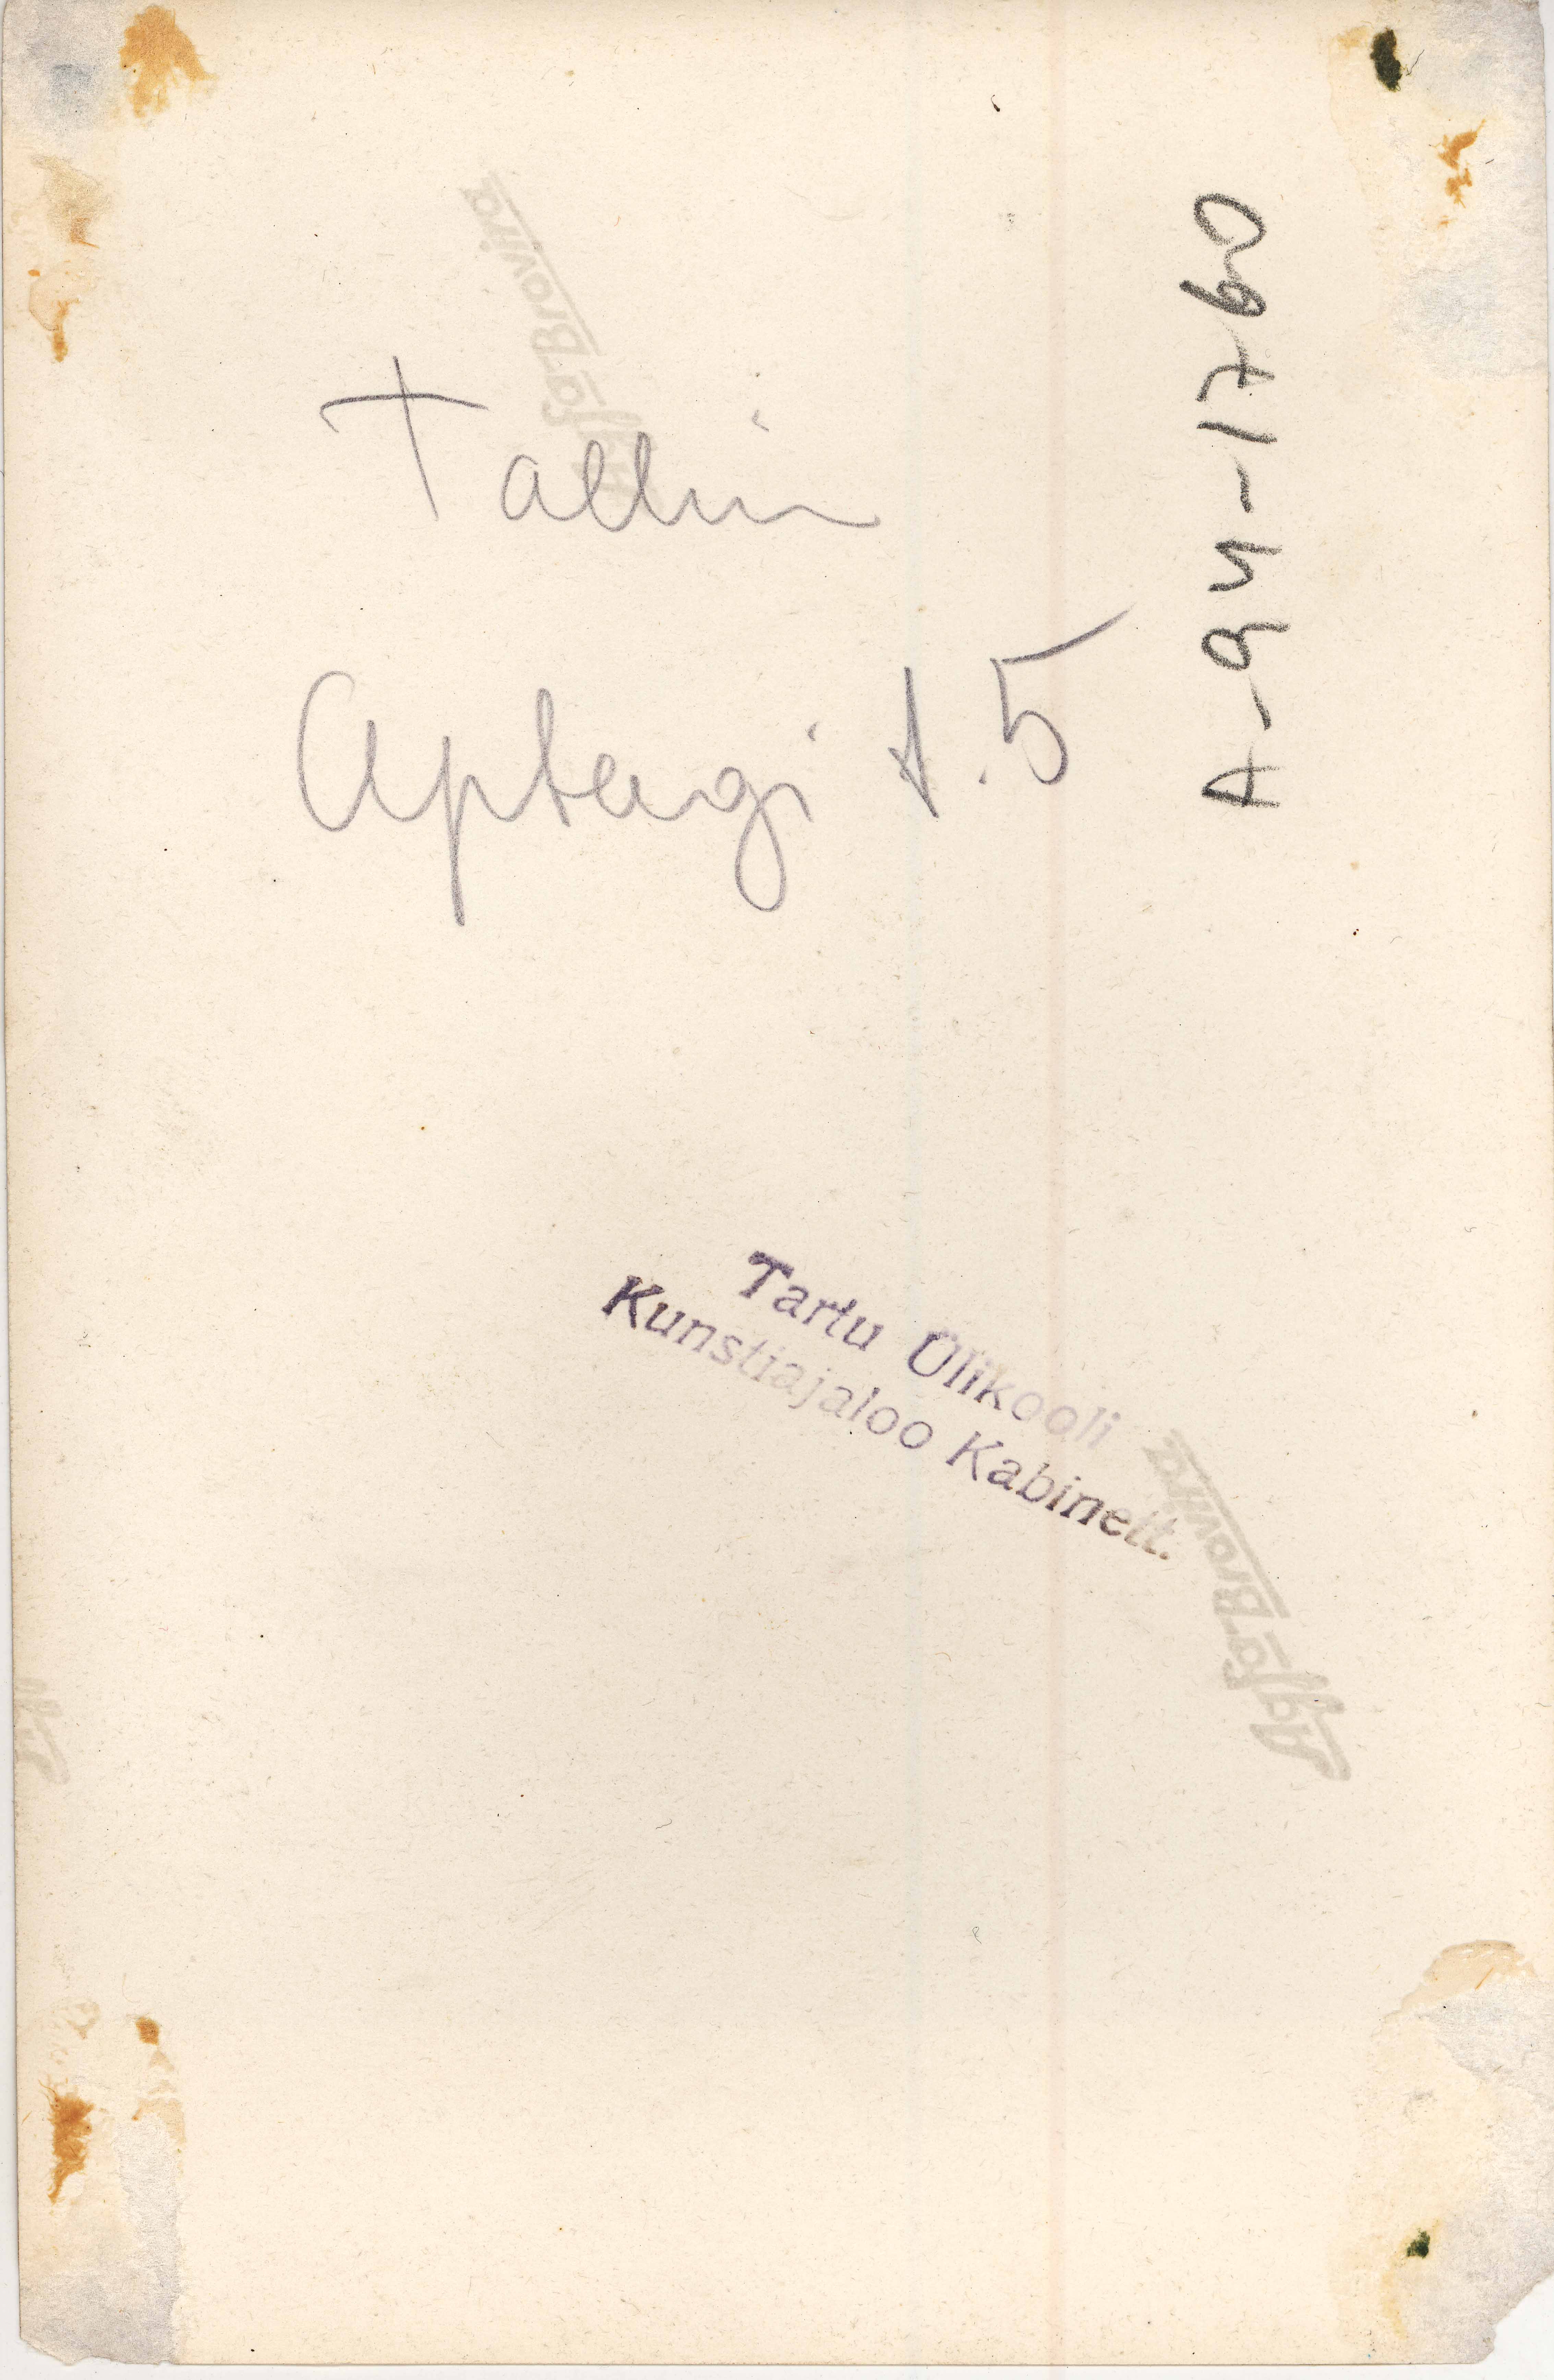 Tallin
Apteegi t. 5
A-94-1760
Tartu Ülikooli
Kunstiajaloo Kabinett.
Agfa-Brovira
Agfa-Brovira